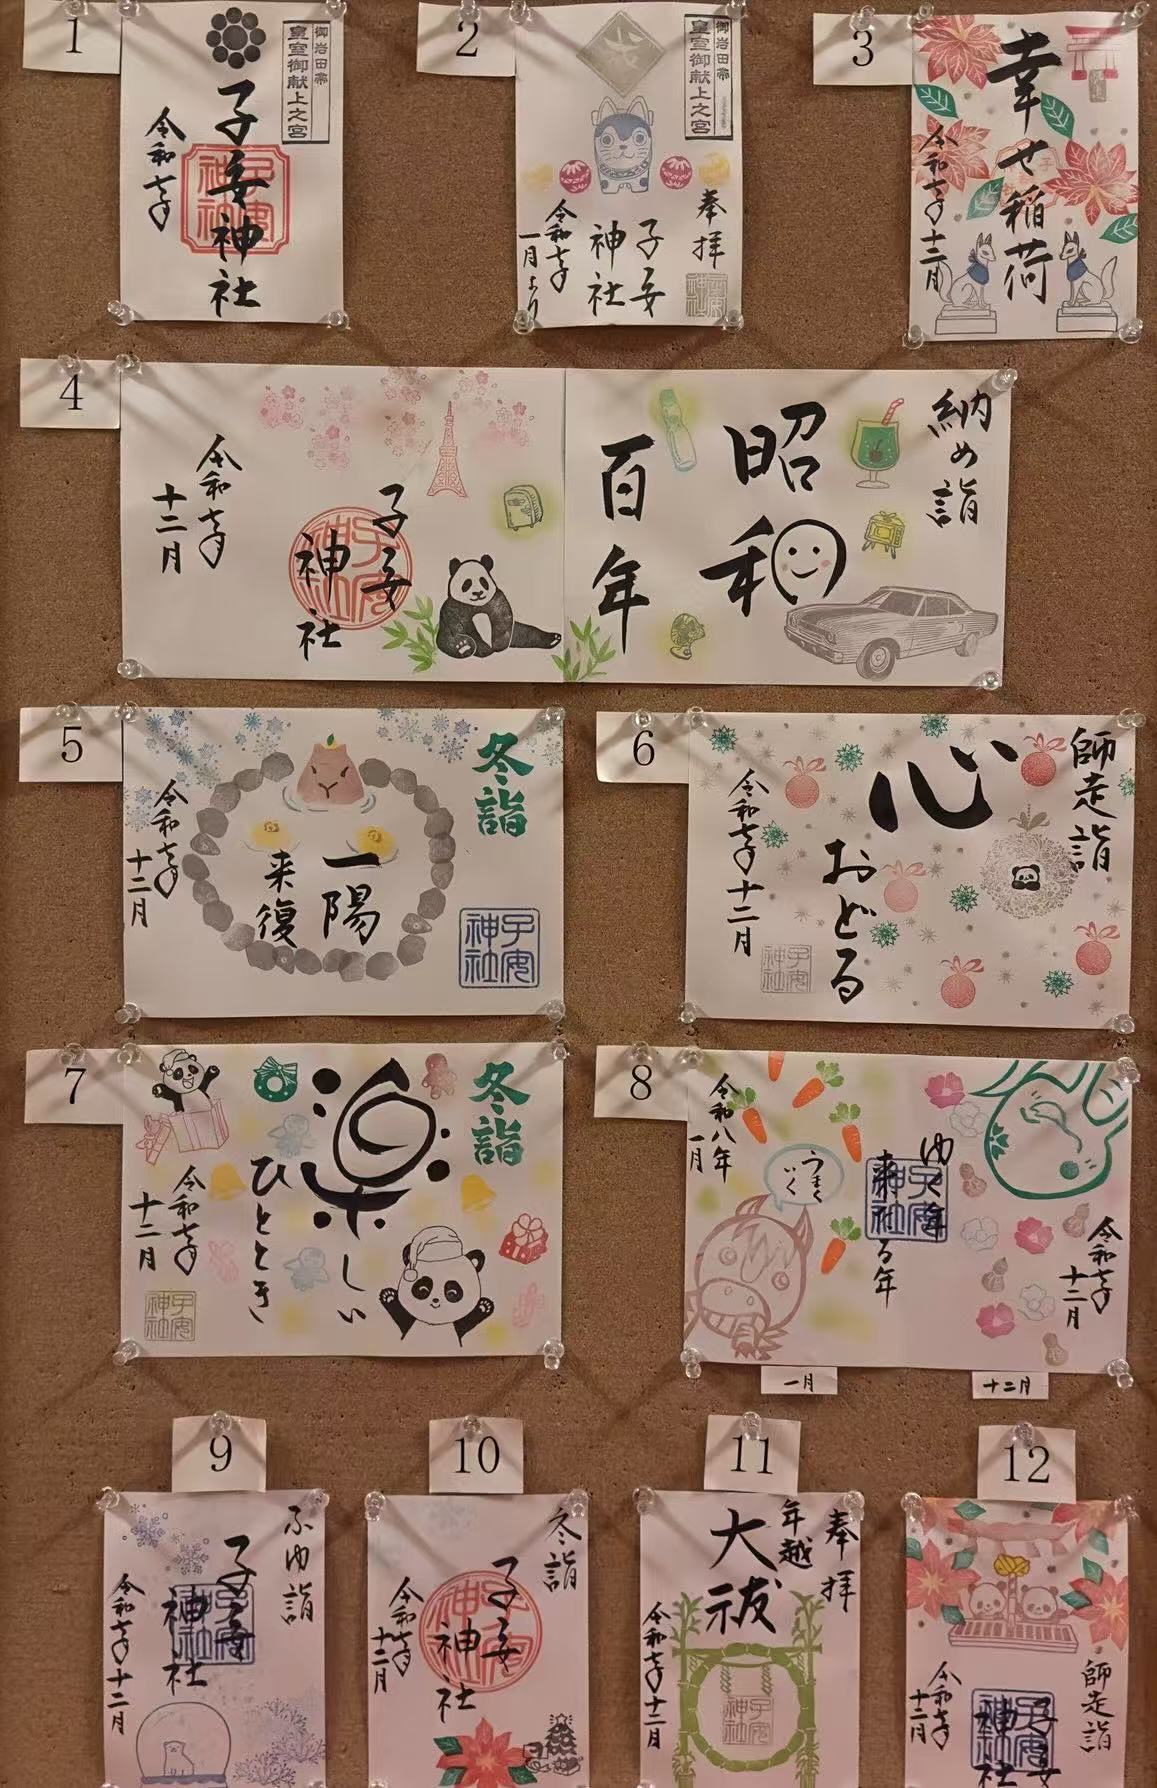 1
御岩田帯
皇室御献上之宮
子安神社
令和七年
2
御岩田帯
皇室御献上之宮
奉拝
子安
神社
令和七年
一月より
3
幸せ稲荷
令和七年十二月
4
納め詣
昭和
百年
子安
神社
令和七年
十二月
5
冬詣
一陽
来復
子安
神社
令和七年
十二月
6
師走詣
心
おどる
子安
神社
令和七年十二月
7
冬詣
楽しい
ひととき
令和七年
十二月
子安
神社
8
令和七年
十二月
ゆく年
来る年
子安
神社
うまく
いく
令和八年
一月
一月
十二月
9
ふゆ詣
子安
神社
令和七年十二月
10
冬詣
子安
神社
令和七年
十二月
11
奉拝
年越
大祓
子安
神社
令和七年十二月
12
師走詣
子安
神社
令和七年
十二月